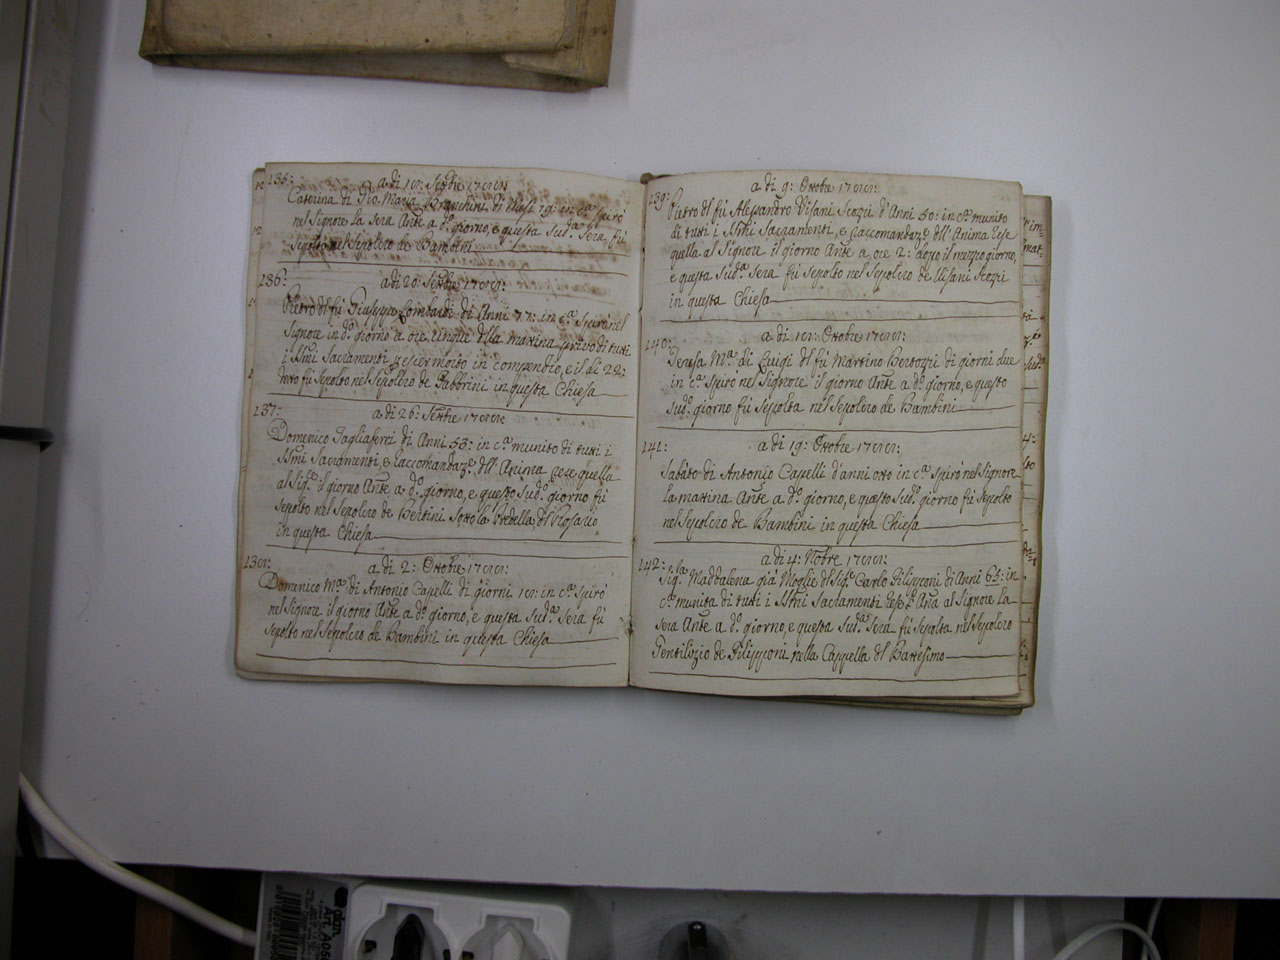 135:
a di 18: Settbre 1788:
Caterina di Gio. Maria Bianchini di Mesi 19: in cª spirò
nel Signore la sera Ante a dº giorno, e questa Sudª Sera fù
sepolta nel sepolcro de Bambini
136:
a di 20: Settbre 1788:
Pietro del fù Giuseppe Lombardi di Anni 77: in cª spirò nel
Signore in dº giorno a ore cinque della mattina privo di tutti
i SSmi Sacramenti per esser morto in compendio, e il di 22:
detto fù sepolto nel sepolcro de Fabbrini in questa Chiesa
137:
a di 26: Settbre 1788:
Domenico Tagliaferri di Anni 53: in cª munito di tutti i
SSmi Sacramenti, e Raccomandazº dell'Anima rese quella
al Sigre il giorno Ante a dº giorno, e questo Sudº giorno fù
sepolto nel sepolcro de Bertini sotto la Predella del Rosario
in questa Chiesa
138:
a di 2: Ottobre 1788:
Domenico Mª di Antonio Capelli di giorni 18: in cª spirò
nel Signore il giorno Ante a dº giorno, e questa Sudª Sera fù
sepolto nel sepolcro de Bambini in questa Chiesa
139:
a di 9: Ottobre 1788:
Pietro del fù Alessandro Visani Scozzi d'Anni 50: in cª munito
di tutti i SSmi Sacramenti, e Raccomandazº dell'Anima Rese
quella al Signore il giorno Ante a ore 2: dopo il mezzogiorno,
e questa Sudª sera fù sepolto nel sepolcro de Visani Scozzi
in questa Chiesa
140:
a di 18: Ottobre 1788:
Teresa Mª di Luigi del fù Martino Bertozzi di giorni due
in cª spirò nel Signore il giorno Ante a dº giorno, e questo
Sudº giorno fù sepolta nel sepolcro de Bambini
141:
a di 19: Ottobre 1788:
Sabato di Antonio Capelli d'anni otto in cª spirò nel Signore
la mattina Ante a dº giorno, e questo Sudº giorno fù sepolto
nel sepolcro de Bambini in questa Chiesa
142:
a di 4: Nobre 1788:
Sigra Maddalena già Moglie del Sigre Carlo Filipponi di Anni 65: in
cª munita di tutti i SSmi Sacramenti rese l'Ana al Signore la
sera Ante a dº giorno, e questa Sudª sera fù sepolta nel sepolcro
Gentilizio de Filipponi nella Cappella del Battesimo